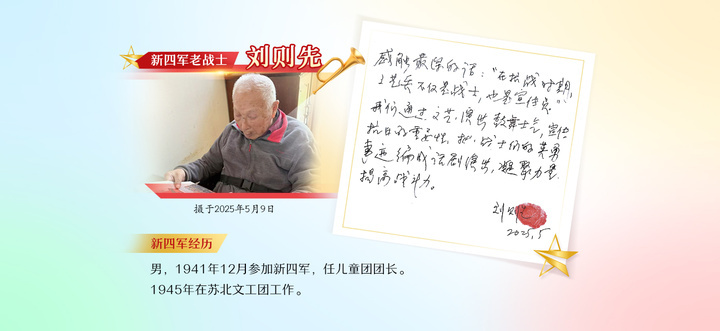 新四军老战士
刘则先
摄于2025年5月9日
新四军经历
男，1941年12月参加新四军，任儿童团团长。
1945年在苏北文工团工作。
感触最深的话："在抗战时期，
文艺兵不仅是战士，也是宣传员"
我们通过文艺演出鼓舞士气，宣传
抗日的重要性，把战士们的英勇
事迹编成话剧演出，凝聚力量
提高战斗力。
刘则
2025.5